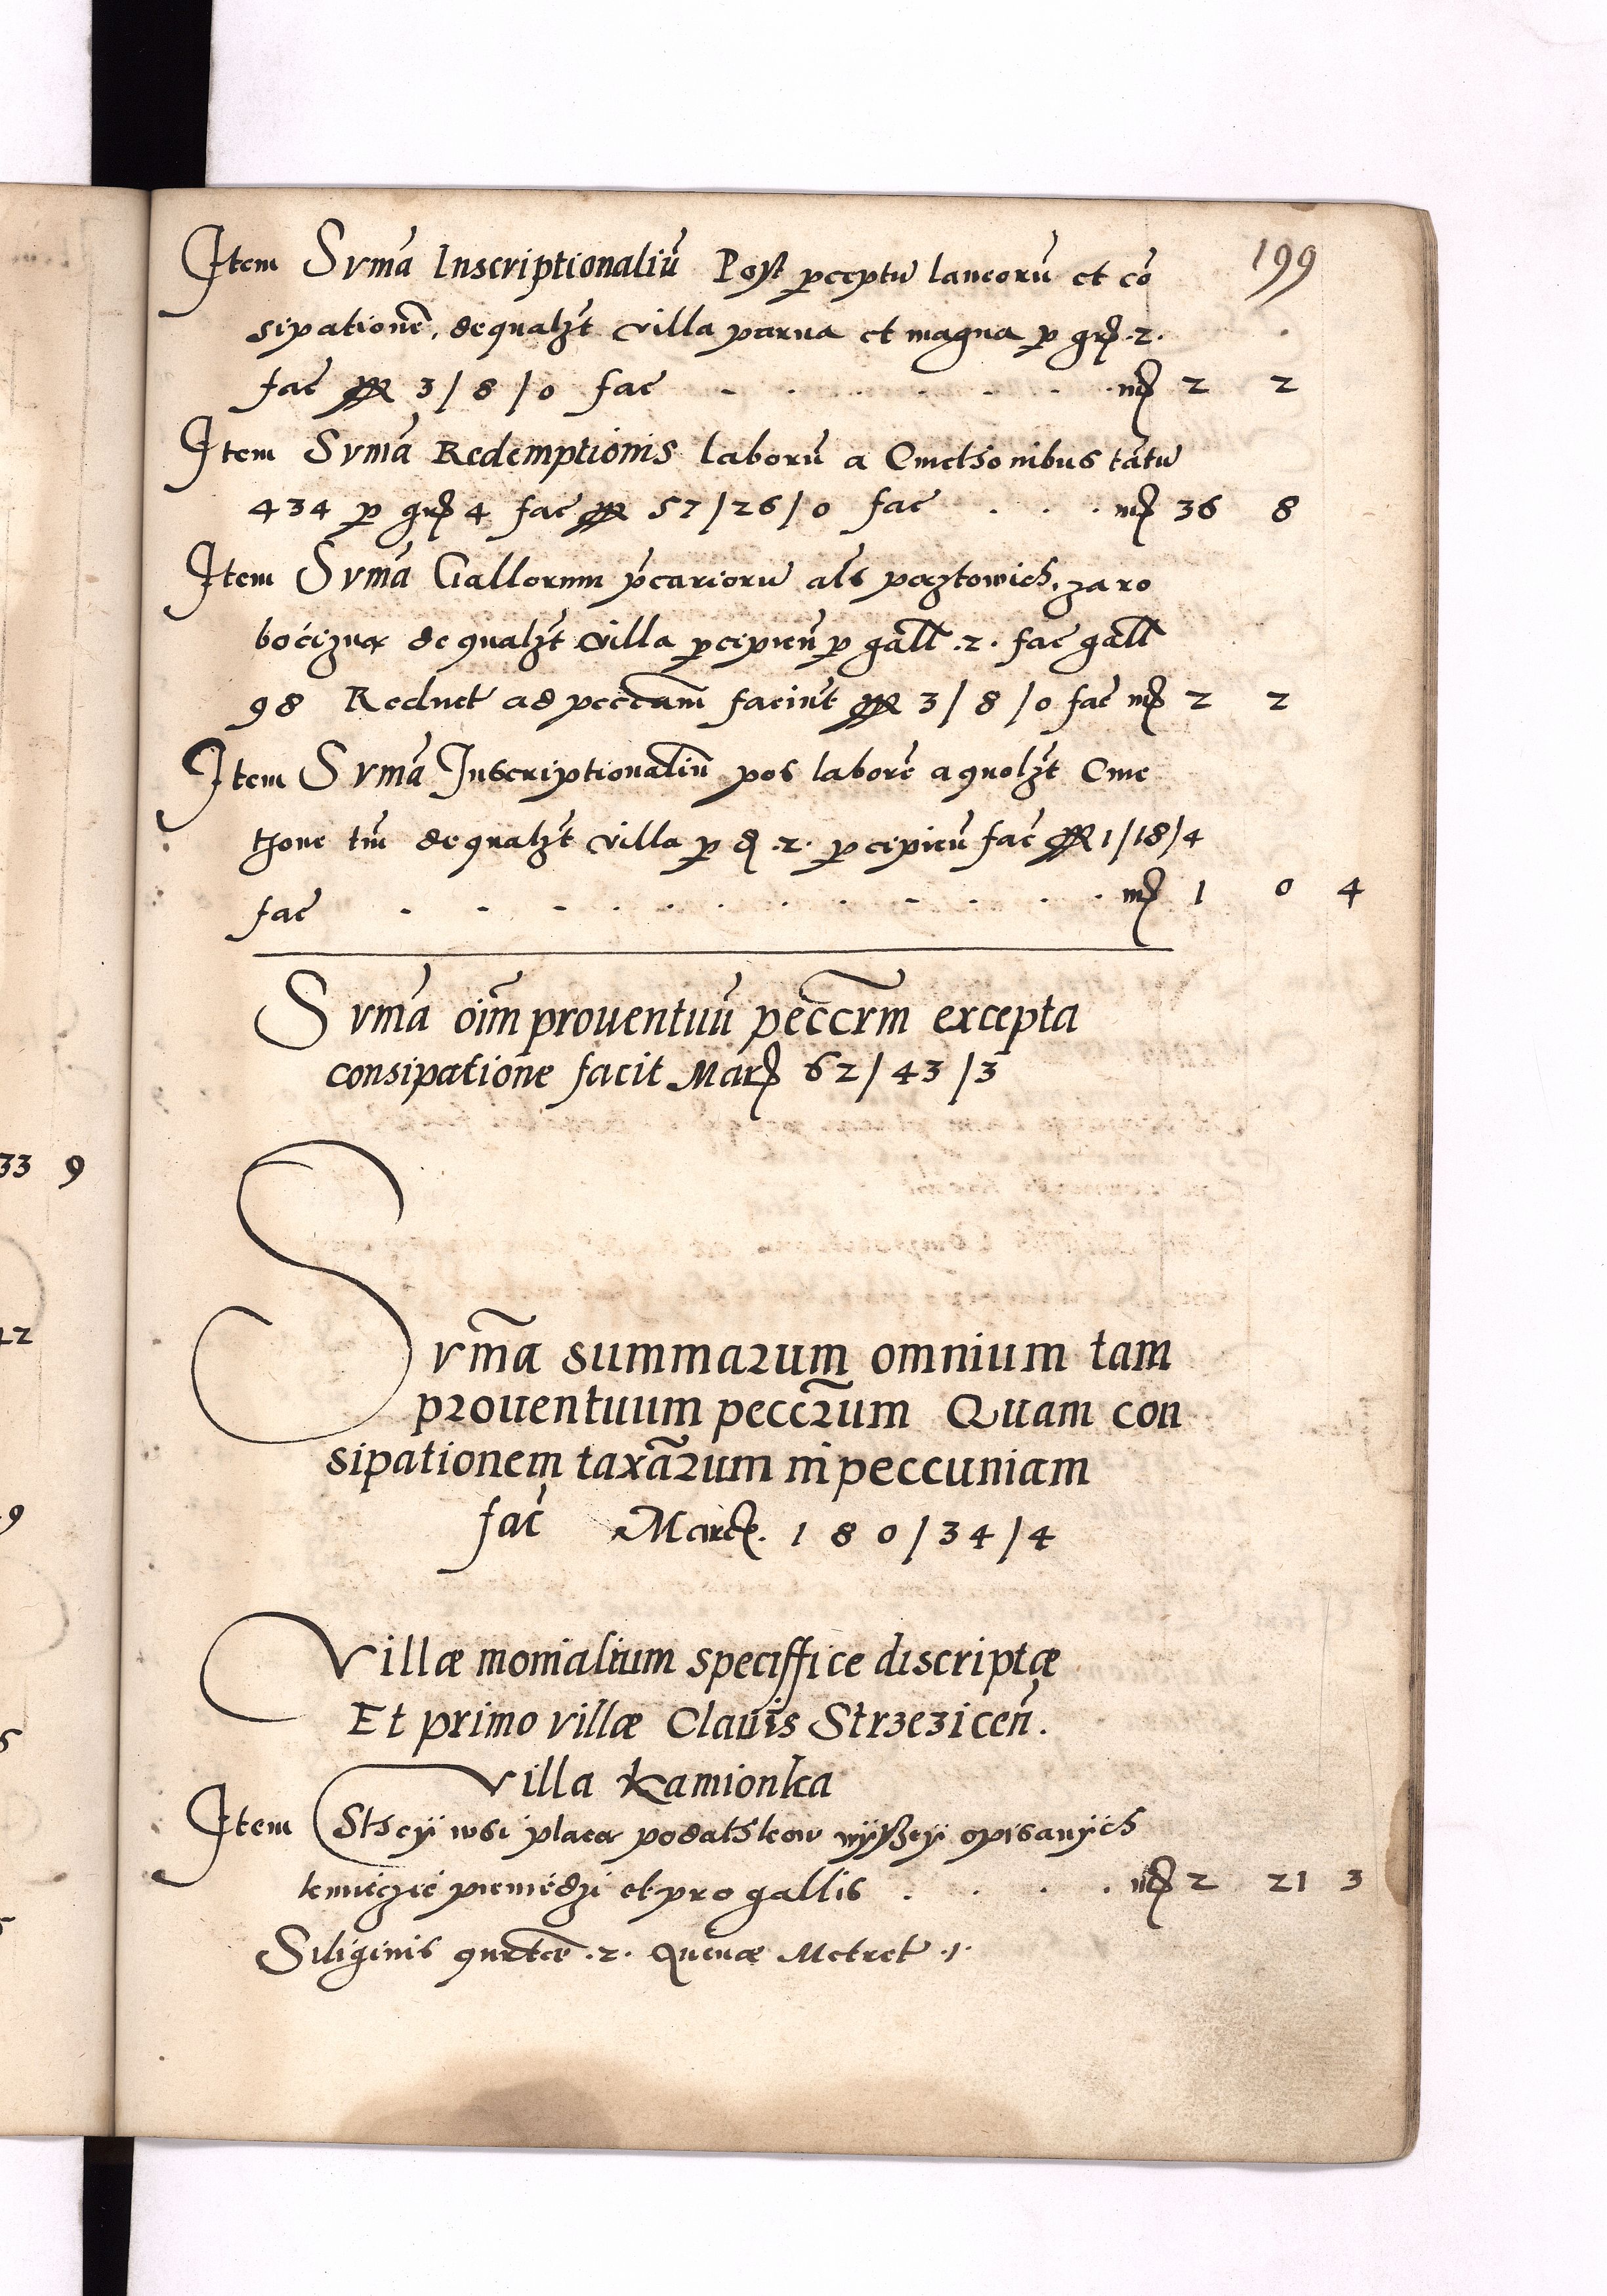 199
Item Sum̃a Inscriptionaliũ Post p̱ceptũ laneorũ et cõ
sipationẽ, de qualȝt villa parua et magna p̱ gr .2.
fac̃ 3/8/0 fac̃ - . . . . . m̃ 2 2
Item Sum̃a Redemptionis laborũ a Cmethonibus tãtũ
434 p̱ gr 4 fac̃ 57/26/0 fac̃ . . . m̃ 36 8
Item Sum̃a Gallorum p̃cariorũ al̃s poztowich, za ro
boċizną de qualȝt villa p̱cipieñ p̱ gall̃ .2. fac̃ gall̃
98 Reduct ad peccũam faciũt 3/8/0 fac̃ m̃ 2 2
Item Sum̃a Inscriptionaliũ pos laborẽ a quolȝt Cme
thone tm̃ de qualȝt villa p̱ d .2. p̱cipieũ fac̃ 1/18/4
fac̃ . . . . . . . . . m̃ 1 0 4
Sum̃a oim̃ prouentuũ peccrm̃ excepta
consipatione facit Mar 62/43/3
Sum̃a summarum omnium tam
prouentuum pecc̃rum Quam con
sipationem taxãrum in peccuniam
fac̃ March. 180/34/4
Villæ monialium speciffice discriptæ
Et primo villæ Clauis Strzeziceñ.
Villa Kamionka
Item S they wsi placą podathkow wyssey opisanych
ku pieniędzi et pro gallis . . . . m̃ 2 21 3
Siliginis .2. Auenæ Metret .1.
33 9
42
9
5
5